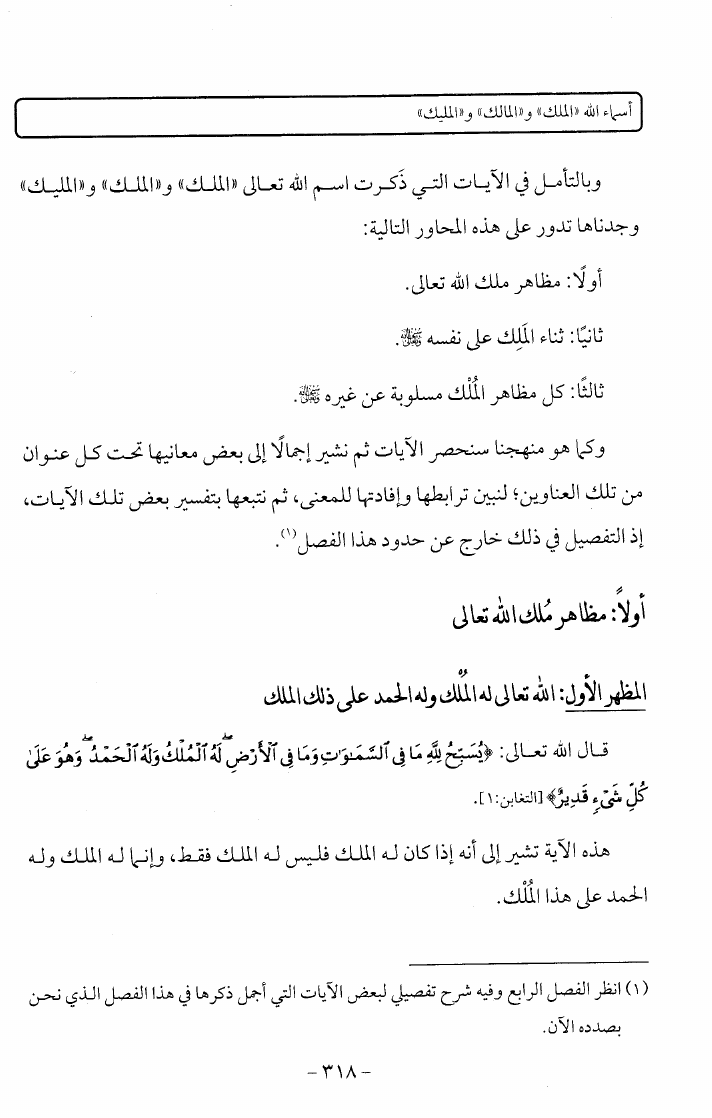 أسماء الله «الملك» و«المالك» و«المليك»
وبالتأمل في الآيات التي ذَكرت اسم الله تعالى «الملك» و«الملك» و«المليك»
وجدناها تدور على هذه المحاور التالية:
أولًا: مظاهر ملك الله تعالى.
ثانيًا: ثناء المَلِك على نفسه ﷻ.
ثالثًا: كل مظاهر المُلْك مسلوبة عن غيره ﷻ.
وكما هو منهجنا سنحصر الآيات ثم نشير إجمالًا إلى بعض معانيها تحت كل عنوان
من تلك العناوين؛ لنبين ترابطها وإفادتها للمعنى، ثم نتبعها بتفسير بعض تلك الآيات،
إذ التفصيل في ذلك خارج عن حدود هذا الفصل(١).
أولاً: مظاهر مُلك الله تعالى
المظهر الأول: الله تعالى له المُلْك وله الحمد على ذلك الملك
قال الله تعالى: ﴿يُسَبِّحُ لِلَّهِ مَا فِي ٱلسَّمَٰوَٰتِ وَمَا فِي ٱلْأَرْضِۖ لَهُ ٱلْمُلْكُ وَلَهُ ٱلْحَمْدُۖ وَهُوَ عَلَىٰ
كُلِّ شَىْءٍ قَدِيرٌ﴾ [التغابن:١].
هذه الآية تشير إلى أنه إذا كان له الملك فليس له الملك فقط، وإنما له الملك وله
الحمد على هذا المُلْك.
(١) انظر الفصل الرابع وفيه شرح تفصيلي لبعض الآيات التي أجمل ذكرها في هذا الفصل الذي نحن
بصدده الآن.
- ٣١٨ -